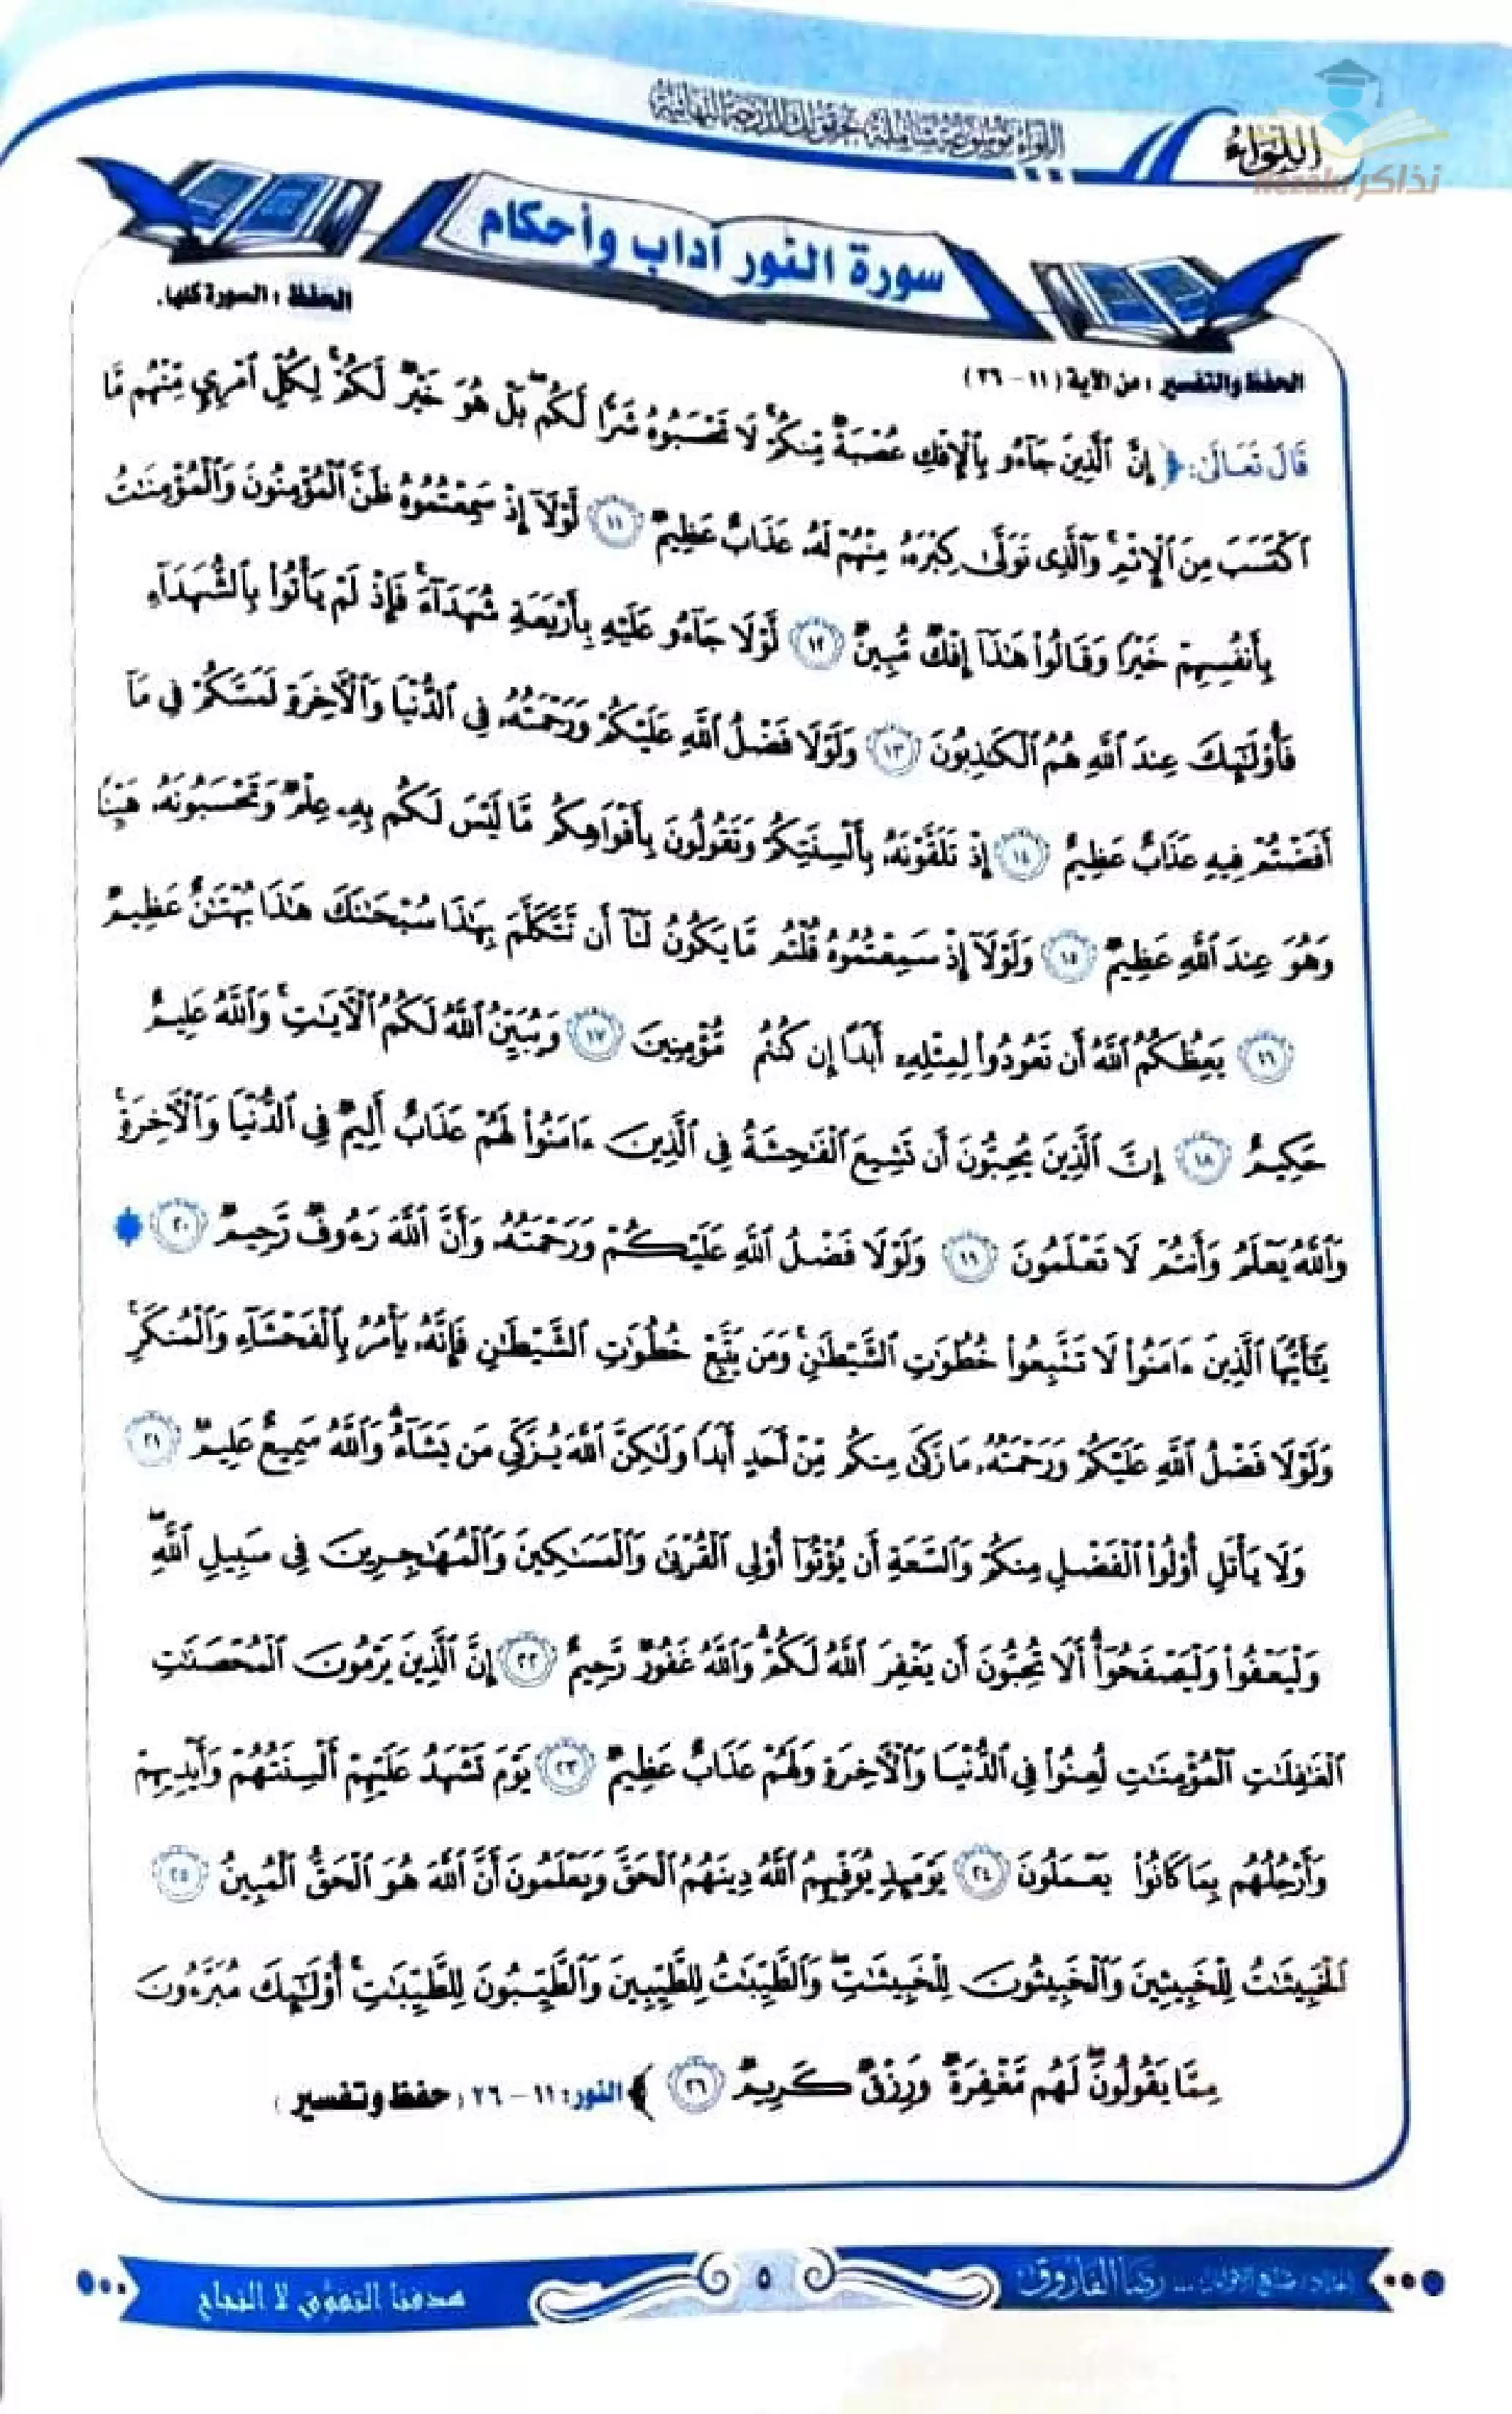 اللواء موسوعة شاملة، تحقق لك الدرجة النهائية
اللواء
نذاكر Nezakr
سورة النور آداب وأحكام
الحفظ : السورة كلها.
الحفظ والتفسير : من الآية (١١ - ٢٦)
قَالَ تَعَالَىٰ: ﴿ إِنَّ ٱلَّذِينَ جَآءُو بِٱلْإِفْكِ عُصْبَةٌ مِّنكُمْ ۚ لَا تَحْسَبُوهُ شَرًّا لَّكُم ۖ بَلْ هُوَ خَيْرٌ لَّكُمْ ۚ لِكُلِّ ٱمْرِئٍ مِّنْهُم مَّا
ٱكْتَسَبَ مِنَ ٱلْإِثْمِ ۚ وَٱلَّذِى تَوَلَّىٰ كِبْرَهُۥ مِنْهُمْ لَهُۥ عَذَابٌ عَظِيمٌ ١١ لَّوْلَآ إِذْ سَمِعْتُمُوهُ ظَنَّ ٱلْمُؤْمِنُونَ وَٱلْمُؤْمِنَٰتُ
بِأَنفُسِهِمْ خَيْرًا وَقَالُوا۟ هَٰذَآ إِفْكٌ مُّبِينٌ ١٢ لَّوْلَا جَآءُو عَلَيْهِ بِأَرْبَعَةِ شُهَدَآءَ ۚ فَإِذْ لَمْ يَأْتُوا۟ بِٱلشُّهَدَآءِ
فَأُو۟لَٰٓئِكَ عِندَ ٱللَّهِ هُمُ ٱلْكَٰذِبُونَ ١٣ وَلَوْلَا فَضْلُ ٱللَّهِ عَلَيْكُمْ وَرَحْمَتُهُۥ فِى ٱلدُّنْيَا وَٱلْءَاخِرَةِ لَمَسَّكُمْ فِى مَآ
أَفَضْتُمْ فِيهِ عَذَابٌ عَظِيمٌ ١٤ إِذْ تَلَقَّوْنَهُۥ بِأَلْسِنَتِكُمْ وَتَقُولُونَ بِأَفْوَاهِكُم مَّا لَيْسَ لَكُم بِهِۦ عِلْمٌ وَتَحْسَبُونَهُۥ هَيِّنًا
وَهُوَ عِندَ ٱللَّهِ عَظِيمٌ ١٥ وَلَوْلَآ إِذْ سَمِعْتُمُوهُ قُلْتُم مَّا يَكُونُ لَنَآ أَن نَّتَكَلَّمَ بِهَٰذَا سُبْحَٰنَكَ هَٰذَا بُهْتَٰنٌ عَظِيمٌ
١٦ يَعِظُكُمُ ٱللَّهُ أَن تَعُودُوا۟ لِمِثْلِهِۦٓ أَبَدًا إِن كُنتُم مُّؤْمِنِينَ ١٧ وَيُبَيِّنُ ٱللَّهُ لَكُمُ ٱلْءَايَٰتِ ۚ وَٱللَّهُ عَلِيمٌ
حَكِيمٌ ١٨ إِنَّ ٱلَّذِينَ يُحِبُّونَ أَن تَشِيعَ ٱلْفَٰحِشَةُ فِى ٱلَّذِينَ ءَامَنُوا۟ لَهُمْ عَذَابٌ أَلِيمٌ فِى ٱلدُّنْيَا وَٱلْءَاخِرَةِ ۚ
وَٱللَّهُ يَعْلَمُ وَأَنتُمْ لَا تَعْلَمُونَ ١٩ وَلَوْلَا فَضْلُ ٱللَّهِ عَلَيْكُمْ وَرَحْمَتُهُۥ وَأَنَّ ٱللَّهَ رَءُوفٌ رَّحِيمٌ ٢٠
يَٰٓأَيُّهَا ٱلَّذِينَ ءَامَنُوا۟ لَا تَتَّبِعُوا۟ خُطُوَٰتِ ٱلشَّيْطَٰنِ ۚ وَمَن يَتَّبِعْ خُطُوَٰتِ ٱلشَّيْطَٰنِ فَإِنَّهُۥ يَأْمُرُ بِٱلْفَحْشَآءِ وَٱلْمُنكَرِ ۚ
وَلَوْلَا فَضْلُ ٱللَّهِ عَلَيْكُمْ وَرَحْمَتُهُۥ مَا زَكَىٰ مِنكُم مِّنْ أَحَدٍ أَبَدًا وَلَٰكِنَّ ٱللَّهَ يُزَكِّى مَن يَشَآءُ ۗ وَٱللَّهُ سَمِيعٌ عَلِيمٌ ٢١
وَلَا يَأْتَلِ أُو۟لُوا۟ ٱلْفَضْلِ مِنكُمْ وَٱلسَّعَةِ أَن يُؤْتُوٓا۟ أُو۟لِى ٱلْقُرْبَىٰ وَٱلْمَسَٰكِينَ وَٱلْمُهَٰجِرِينَ فِى سَبِيلِ ٱللَّهِ ۖ
وَلْيَعْفُوا۟ وَلْيَصْفَحُوٓا۟ ۗ أَلَا تُحِبُّونَ أَن يَغْفِرَ ٱللَّهُ لَكُمْ ۗ وَٱللَّهُ غَفُورٌ رَّحِيمٌ ٢٢ إِنَّ ٱلَّذِينَ يَرْمُونَ ٱلْمُحْصَنَٰتِ
ٱلْغَٰفِلَٰتِ ٱلْمُؤْمِنَٰتِ لُعِنُوا۟ فِى ٱلدُّنْيَا وَٱلْءَاخِرَةِ وَلَهُمْ عَذَابٌ عَظِيمٌ ٢٣ يَوْمَ تَشْهَدُ عَلَيْهِمْ أَلْسِنَتُهُمْ وَأَيْدِيهِمْ
وَأَرْجُلُهُم بِمَا كَانُوا۟ يَعْمَلُونَ ٢٤ يَوْمَئِذٍ يُوَفِّيهِمُ ٱللَّهُ دِينَهُمُ ٱلْحَقَّ وَيَعْلَمُونَ أَنَّ ٱللَّهَ هُوَ ٱلْحَقُّ ٱلْمُبِينُ ٢٥
ٱلْخَبِيثَٰتُ لِلْخَبِيثِينَ وَٱلْخَبِيثُونَ لِلْخَبِيثَٰتِ ۖ وَٱلطَّيِّبَٰتُ لِلطَّيِّبِينَ وَٱلطَّيِّبُونَ لِلطَّيِّبَٰتِ ۚ أُو۟لَٰٓئِكَ مُبَرَّءُونَ
مِمَّا يَقُولُونَ ۖ لَهُم مَّغْفِرَةٌ وَرِزْقٌ كَرِيمٌ ٢٦ ﴾ النور: ١١ - ٢٦ (حفظ وتفسير)
رضا الفاروق
٥
هدفنا التفوق لا النجاح